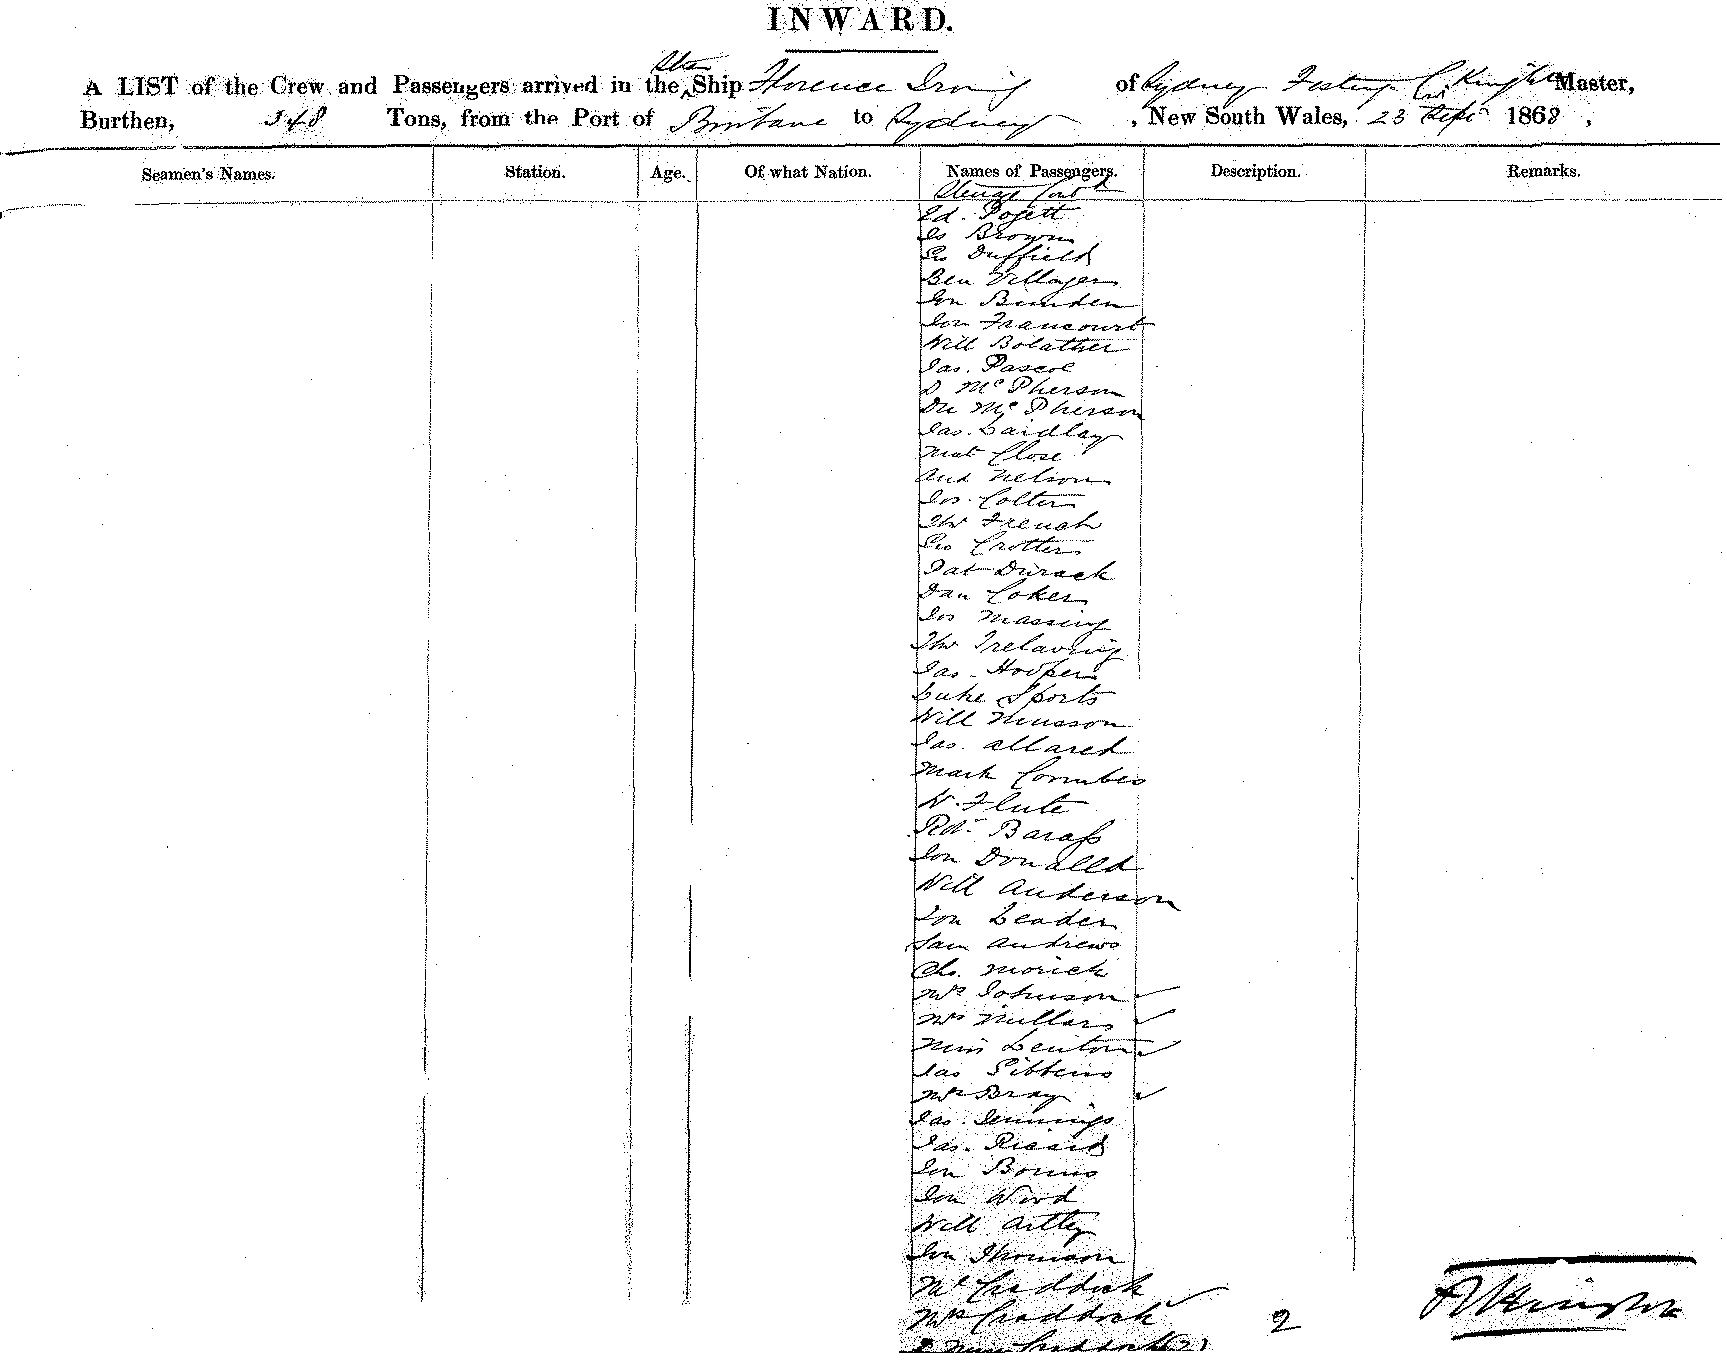 INWARD.
A LIST of the Crew and Passengers arrived in the Ship Florence Irving of Sydney Master,
Burthen, 348 Tons, from the Port of Brisbane to Sydney, New South Wales, 23 Sept 1868,
Seamen's Names. Station. Age. Of what Nation. Names of Passengers. Description. Remarks.
Ed. Pogett
Brown
Duffield
Ben Villager
Jon Bunden
Jon Francourt
Will Bolather
Jas. Pascoe
D McPherson
Du McPherson
Jas. Laidlay
Mat Close
And Nelson
Jos. Colter
Tho French
Geo Crotter
Pat Durack
Dan Coker
Jos Massing
Tho Trelaving
Jas. Hooper
Luke Sports
Will Musson
Jas. Allared
Mark Coombes
W. Flute
Rd. Barass
Jon Donalld
Will Anderson
Jon Leader
Sam Andrews
Chs. Morick
Mrs Johnson
Mrs Millar
Miss Lenton
Jas Gibbens
Mrs Bray
Jas. Jennings
Jas. Ricard
Jon
Jon Wood
Will Artley
Jon Thomson
Mr Craddock
Mrs Craddock 2